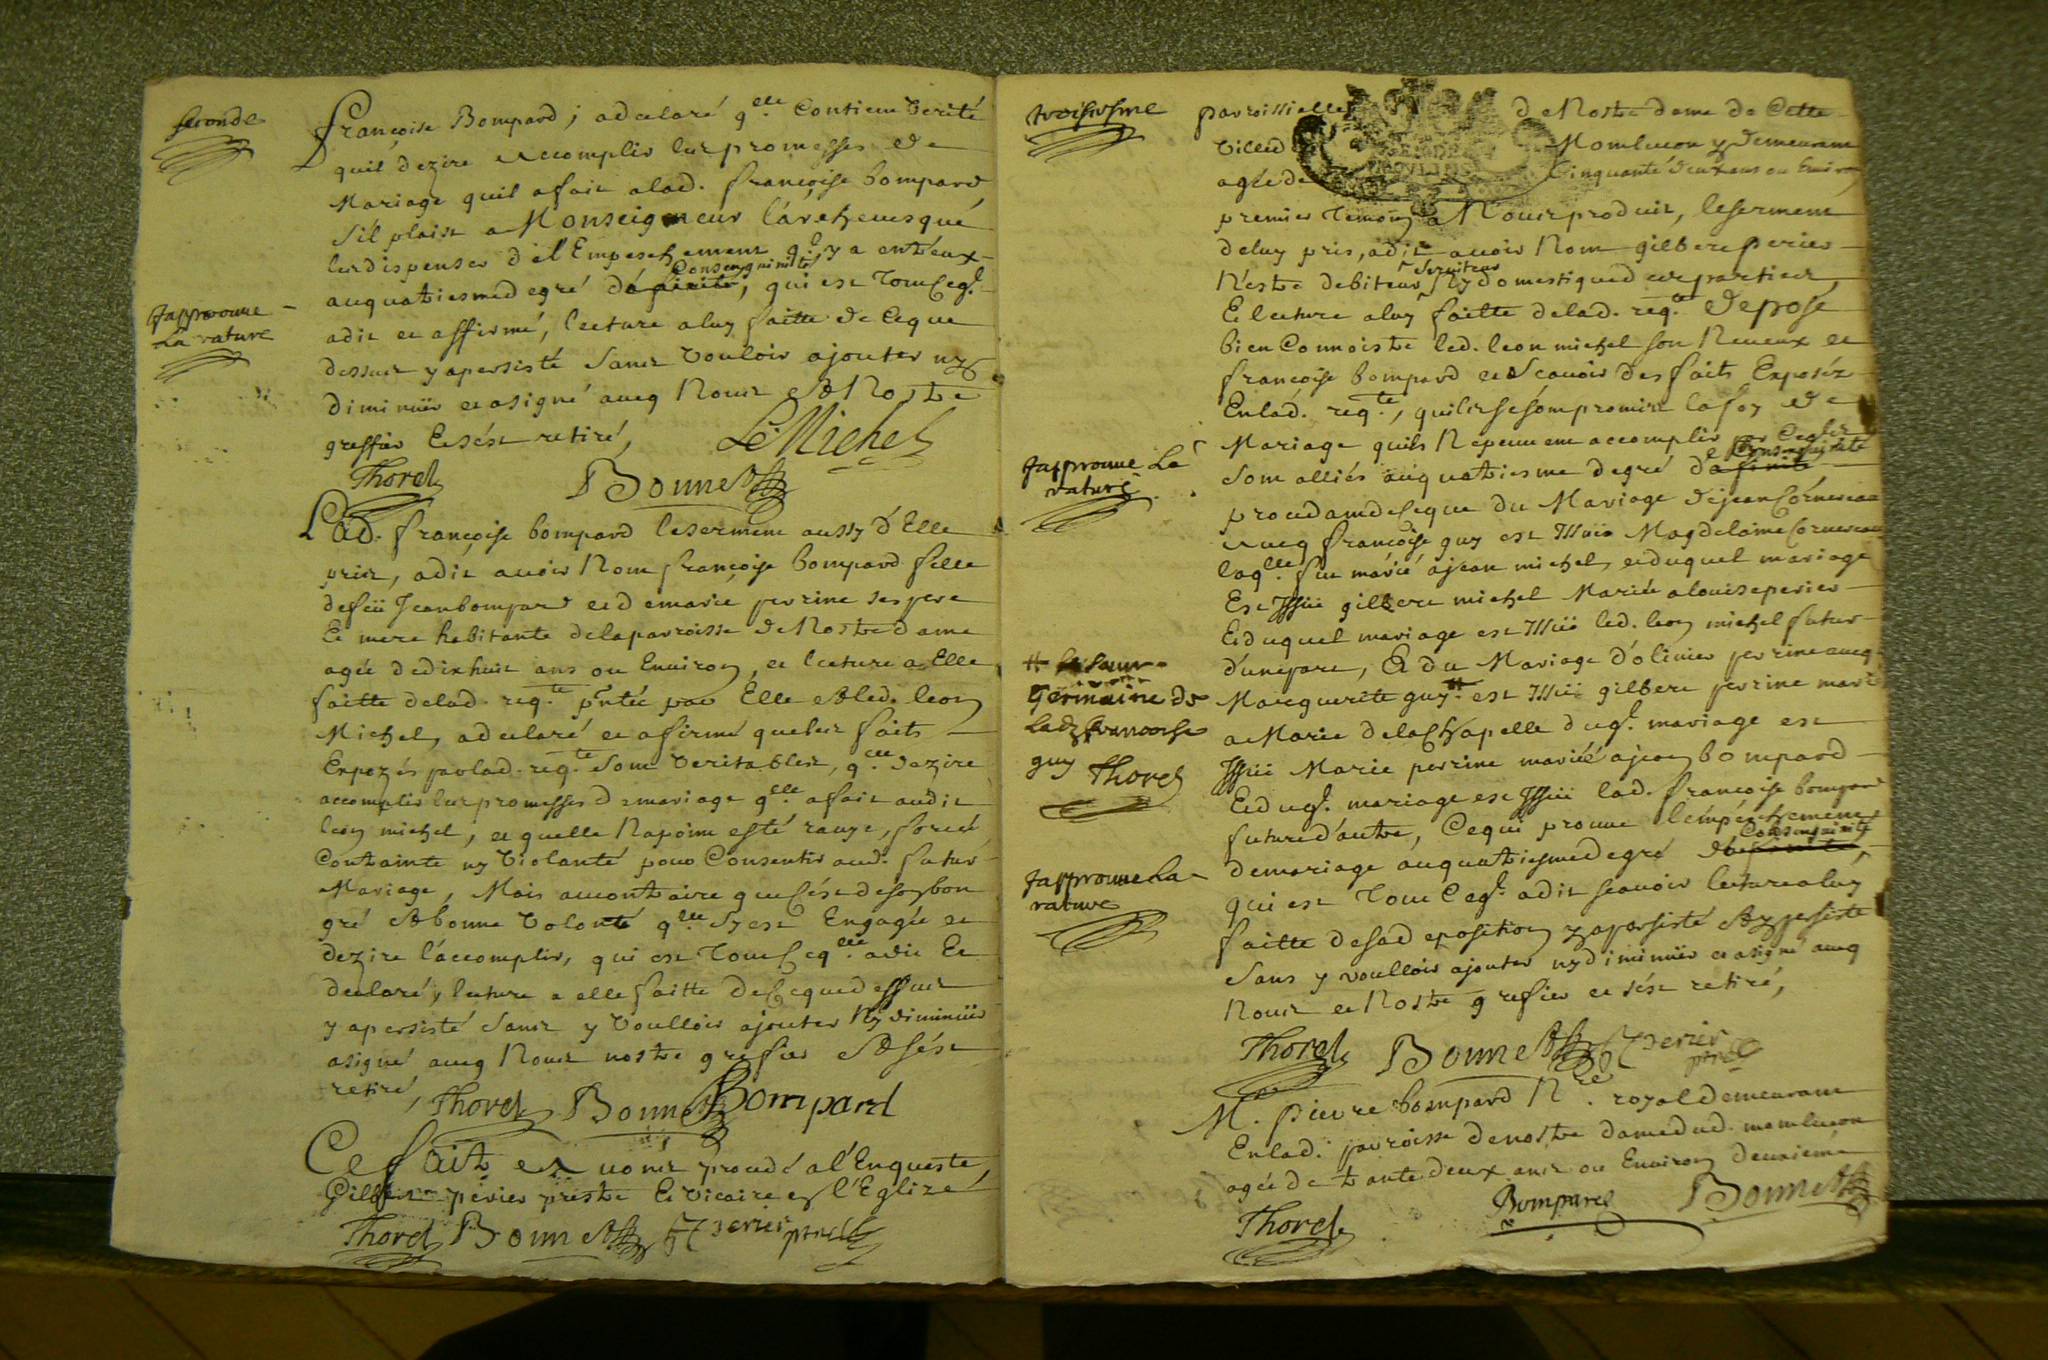 seconde
françoise Bompard, a declaré qelle Contient Verité
quil dezire accomplir les promesses de
Mariage quil a fait a lad. françoise bompard
s'il plaist a Monseigneur l'archevesque
les dispenser de l'Empeschement ql y a entr'eux
au quatriesme degré Consanguinité, qui est Tout ceql
Japprouve La rature
a dit et affirmé, lecture a luy faitte de Ceque
dessus y a persisté Sans Vouloir ajouter ny
diminuer et a signé avecq Nous Et Nostre
greffier Et s'est retiré, Le Michel
Thorel Bonnet
Lad. françoise bompard le serment aussy d'Elle
pris, a dit avoir Nom françoise bompard fille
de feu Jean bompard et de marie perrine ses pere
Et mere habitante de la parroisse de Nostre dame
agée de dixhuit ans ou Environ, et lecture a Elle
faitte delad. reqte pntée par Elle et led. leon
Michel, a declaré et afirmé que les faits
Expozés par lad. reqte Sont Veritables, qelle dezire
accomplir les promesses de mariage qelle a fait audit
leon michel, et quelle Napoint esté forcé
Contrainte ny Violanté pour Consentir aud. futur
Mariage, Mais au contraire que C'est de son bon
gré et bonne Volonté qelle S'y est Engagée et
dezire l'accomplir, qui est Tout Ceqelle a dit Et
declaré, lecture a elle faitte de Ceque dessus
y a persisté Sans y Voulloir ajouter Ny diminuer
a signé avecq Nous nostre grefier Et s'est
retiré, Thorel Bonnet Bompard
Ce fait avons procedé a l'Enqueste,
Gilbert perier prestre Et Vicaire en l'Eglize
Thorel Bonnet G perier ptre
troisiesme
parroissielle de Nostre dame de Cette
Ville de Momlucon y demeurant
agée de Cinquante deux ans ou Environ
premier Temoin a Nous produit, le serment
de luy pris, a dit avoir Nom gilbert perier
N'estre debiteur Serviteur Ny domestique des parties,
Et lecture a luy faitte delad. reqte depose
bien Connoistre led. leon michel son Neveux et
françoise bompard et Scavoir des faits Exposéz
En lad. reqte, quils se sont promis la foy de
Mariage quils Ne peuvent accomplir
Japprouve La rature
Sont alliés au quatriesme degré Consanguinité
procedant de ceque du Mariage de jean Cornereau
avecq françoise guy est Issüe Magdelaine Cornereau
laqlle fut marié a jean michel, et duquel mariage
Est Issü gilbert michel Marié a louise perier
Et duquel mariage est Issü led. leon michel futur
d'une part, Et du Mariage d'olivier perrine avecq
Marguerite guy # est Issü gilbert perrine marié
# Germaine de Lad françoise guy Thorel
a Marie de la Chapelle duql mariage est
Issüe Marie perrine mariée a jean bompard
Et duql mariage est Issüe lad. françoise bompard
future d'autre, Cequi prouve l'empéchement
de mariage au quatriesme degré Consanguinité,
Japprouve La rature
qui est Tout Ceql a dit scavoir lecture a luy
faitte de sa deposition y a persisté Et y persiste
Sans y voulloir ajouter ny diminuer et a signé avecq
Nous et Nostre grefier et s'est retiré,
Thorel Bonnet G perier ptre
Me pierre bompard Nre royal demeurant
En lad. parroisse de nostre dame dud. momlucon
agée de trante deux ans ou Environ deuxiéme
Thorel Bompard Bonnet